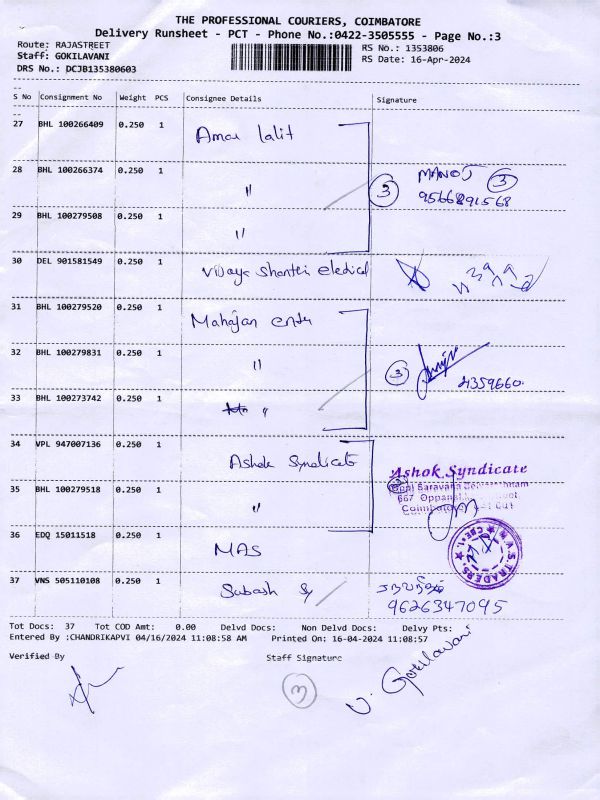 THE PROFESSIONAL COURIERS, COIMBATORE
Delivery Runsheet - PCT - Phone No.:0422-3505555 - Page No.:3
Route: RAJASTREET
RS No.: 1353806
Staff: GOKILAVANI
RS Date: 16-Apr-2024
DRS No.: DCJB135380603
S No Consignment No Weight PCS Consignee Details Signature
27 BHL 100266409 0.250 1 Amar lalit
28 BHL 100266374 0.250 1 " 3 MANOJ 3
9566891568
29 BHL 100279508 0.250 1 "
30 DEL 901581549 0.250 1 Vijaya Shanthi eledical
31 BHL 100279520 0.250 1 Mahajan enter
32 BHL 100279831 0.250 1 " 3
4359660
33 BHL 100273742 0.250 1 "
34 VPL 947007136 0.250 1 Ashok Syndicate
Ashok Syndicate
35 BHL 100279518 0.250 1 "
667 Oppanakara Street
Coimbatore
36 EDQ 15011518 0.250 1 MAS
M.A.S TRADERS
CBE-1.
37 VNS 505110108 0.250 1 Subash
9626347095
Tot Docs: 37 Tot COD Amt: 0.00 Delvd Docs: Non Delvd Docs: Delvy Pts:
Entered By :CHANDRIKAPVI 04/16/2024 11:08:58 AM Printed On: 16-04-2024 11:08:57
Verified By Staff Signature
3
V. Gokilavani